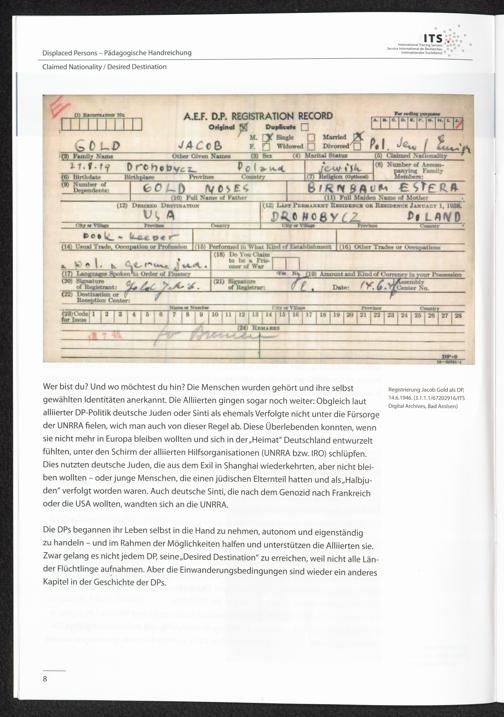 Displaced Persons – Pädagogische Handreichung
Claimed Nationality / Desired Destination
ITS
International Tracing Service
Service International de Recherches
Internationaler Suchdienst
A.E.F. D.P. REGISTRATION RECORD
(1) REGISTRATION No.
Original Duplicate
For coding purposes
A. B. C. D. E. F. G. H. I. J.
GOLD JACOB M. Single Married Pol. Jew /
F. Widowed Divorced
(2) Family Name Other Given Names (3) Sex (4) Marital Status (5) Claimed Nationality
Drohobycz Poland jewish
(6) Birthdate Birthplace Province Country (7) Religion (Optional) (8) Number of Accompanying Family Members:
(9) Number of Dependents: GOLD MOSES BIRNBAUM ESTERA
(10) Full Name of Father (11) Full Maiden Name of Mother
(12) DESIRED DESTINATION (13) LAST PERMANENT RESIDENCE OR RESIDENCE JANUARY 1, 1938.
USA DROHOBYCZ POLAND
City or Village Province Country City or Village Province Country
book-keeper
(14) Usual Trade, Occupation or Profession (15) Performed in What Kind of Establishment (16) Other Trades or Occupations
(18) Do You Claim to be a Prisoner of War
(17) Languages Spoken in Order of Fluency (19) Amount and Kind of Currency in your Possession
(20) Signature of Registrant: (21) Signature of Registrar: Date: 14.6.46 Assembly Center No.
(22) Destination or Reception Center:
Name or Number City or Village Province Country
(23) Code for Issue 1 2 3 4 5 6 7 8 9 10 11 12 13 14 15 16 17 18 19 20 21 22 23 24 25 26 27 28
(24) REMARKS
for Bremen
DP-2
Wer bist du? Und wo möchtest du hin? Die Menschen wurden gehört und ihre selbst
gewählten Identitäten anerkannt. Die Alliierten gingen sogar noch weiter: Obgleich laut
alliierter DP-Politik deutsche Juden oder Sinti als ehemals Verfolgte nicht unter die Fürsorge
der UNRRA fielen, wich man auch von dieser Regel ab. Diese Überlebenden konnten, wenn
sie nicht mehr in Europa bleiben wollten und sich in der „Heimat“ Deutschland entwurzelt
fühlten, unter den Schirm der alliierten Hilfsorganisationen (UNRRA bzw. IRO) schlüpfen.
Dies nutzten deutsche Juden, die aus dem Exil in Shanghai wiederkehrten, aber nicht blei-
ben wollten – oder junge Menschen, die einen jüdischen Elternteil hatten und als „Halbju-
den“ verfolgt worden waren. Auch deutsche Sinti, die nach dem Genozid nach Frankreich
oder die USA wollten, wandten sich an die UNRRA.
Registrierung Jacob Gold als DP,
14.6.1946. (3.1.1.1/67202916/ITS
Digital Archives, Bad Arolsen)
Die DPs begannen ihr Leben selbst in die Hand zu nehmen, autonom und eigenständig
zu handeln – und im Rahmen der Möglichkeiten halfen und unterstützten die Alliierten sie.
Zwar gelang es nicht jedem DP, seine „Desired Destination“ zu erreichen, weil nicht alle Län-
der Flüchtlinge aufnahmen. Aber die Einwanderungsbedingungen sind wieder ein anderes
Kapitel in der Geschichte der DPs.
8